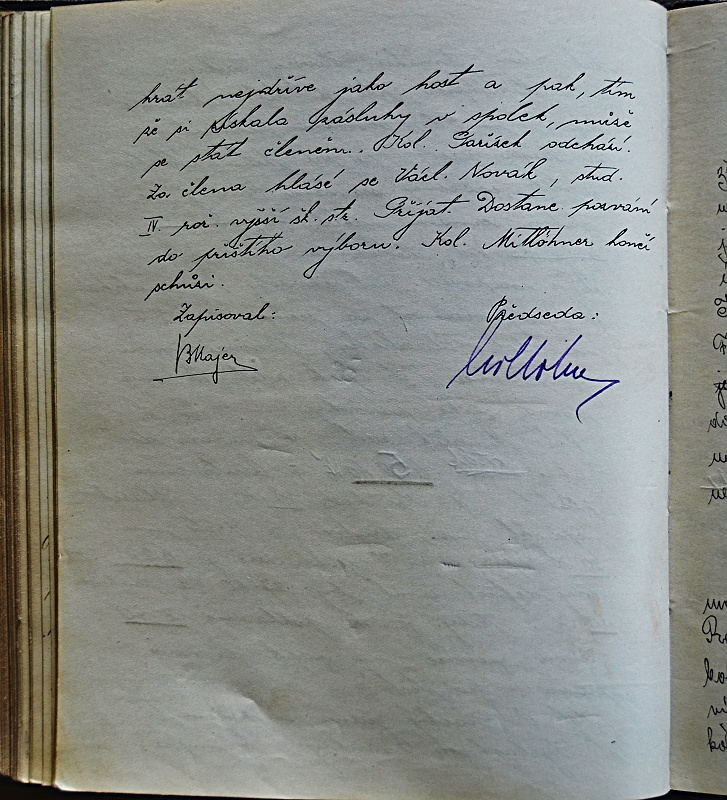 hrát nejdříve jako host a pak, tím
že si získala zásluhy v spolek, může
se stát členem. Kol. Gaříšek odchází.
Za člena hlásí se Václ. Novák, stud.
IV. roč. vyšší šk. str. Přijat. Dostane pozvání
do příštího výboru. Kol. Mitlöhner končí
schůzi.
Zapisoval: Předseda:
BMajer Mitlöhner